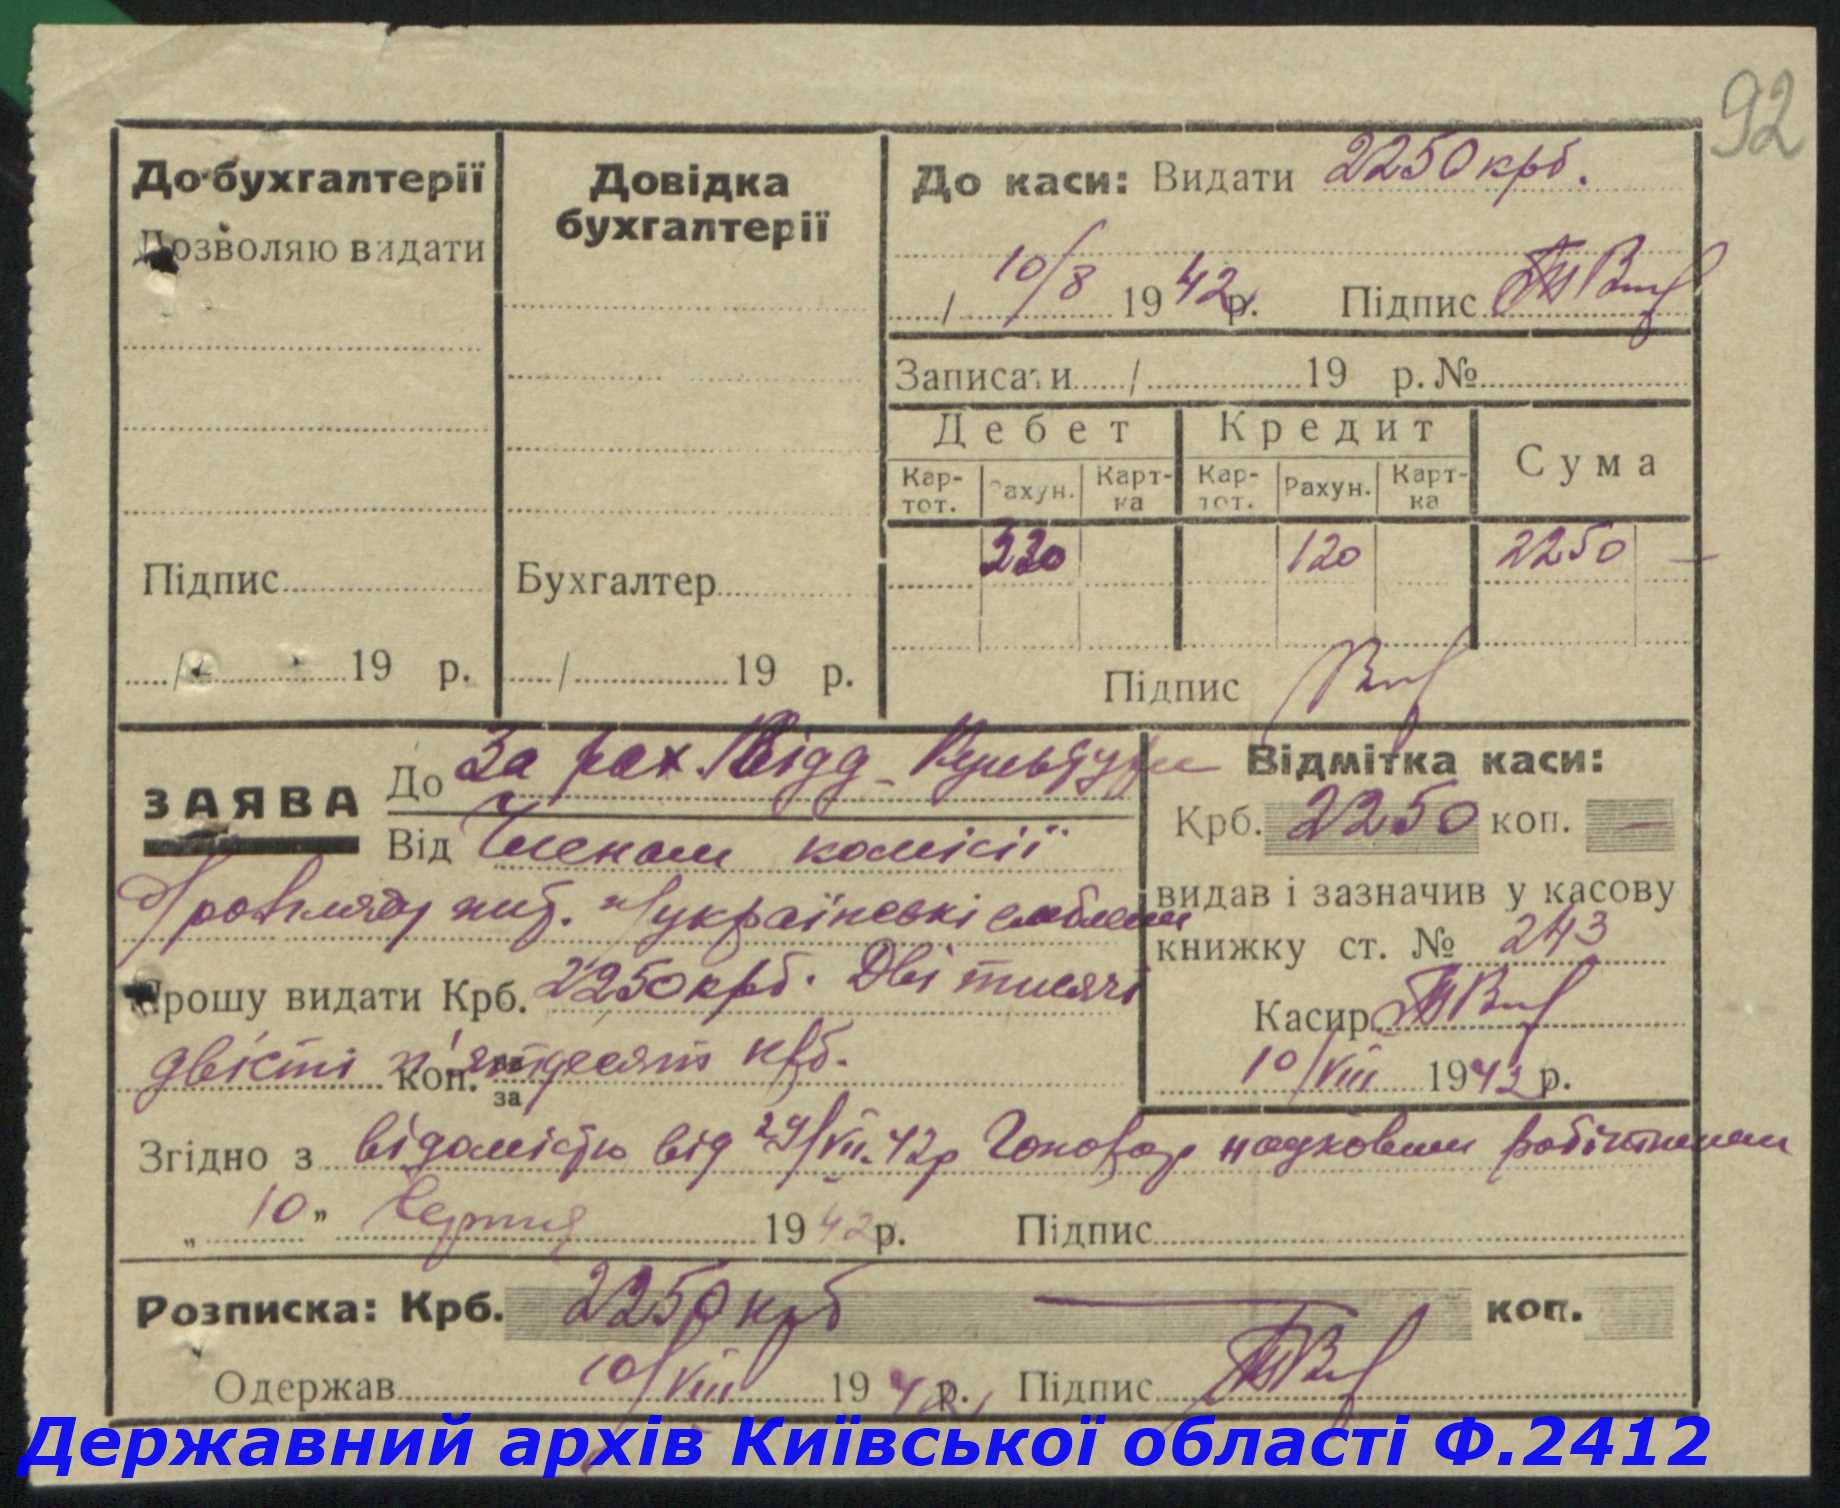 92
До бухгалтерії
Дозволяю видати
Підпис
/ 19 р.
Довідка
бухгалтерії
Бухгалтер
/ 19 р.
До каси: Видати 2250 крб.
/ 10/8 1942 р. Підпис
Записати / 19 р. №
Дебет Кредит Сума
Кар-тот. Рахун. Карт-ка Кар-тот. Рахун. Карт-ка
330 120 2250 —
Підпис
ЗАЯВА До За рах. Відд. Культури
Від Членам комісії
розгляду пит. "українські емблеми
Прошу видати Крб. 2250 крб. Дві тисячі
двісті п'ятдесят крб.
коп. на
за
Згідно з відомістю від 29/VII-42р Гонорар науковим робітникам
„ 10 " Серпня 1942 р. Підпис
Відмітка каси:
Крб. 2250 коп. —
видав і зазначив у касову
книжку ст. № 243
Касир
10/VIII 1942 р.
Розписка: Крб. 2250 крб — коп.
Одержав 10/VIII 1942 р. Підпис
Державний архів Київської області Ф.2412